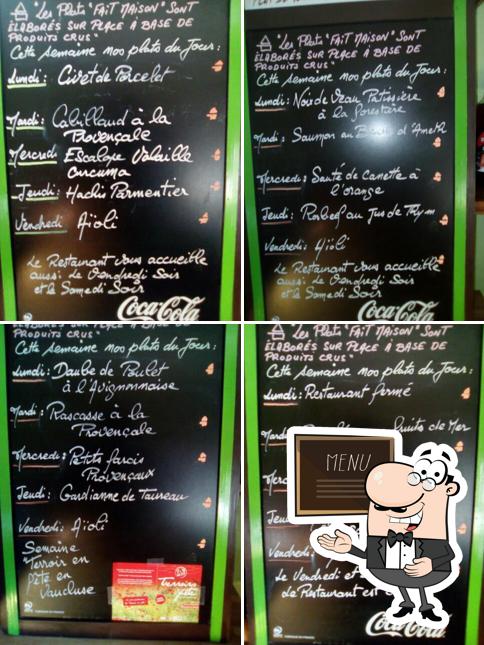 "Les Plats "FAIT MAISON" SONT
ELABORÉS SUR PLACE À BASE DE
PRODUITS CRUS"
Cette semaine nos plats du Jour:
Lundi: Civet de Porcelet
Mardi: Cabillaud à la
Provençale
Mercredi Escalope Volaille
Curcuma
Jeudi: Hachis Parmentier
Vendredi Aïoli
Le Restaurant vous accueille
aussi: Le Vendredi Soir
et le Samedi Soir
Coca-Cola
"Les Plats "FAIT MAISON" SONT
ELABORÉS SUR PLACE À BASE DE
PRODUITS CRUS"
Cette semaine nos plats du Jour:
Lundi: Noix de Veau Patissière
à la forestière
Mardi: Saumon au d'Aneth
Mercredi: Sauté de Canette à
l'orange
Jeudi: Rosbeef au Jus de Thym
Vendredi: Aïoli
Le Restaurant vous accueille
aussi: Le Vendredi Soir
et le Samedi Soir
Coca-Cola
ELABORÉS SUR PLACE À BASE DE
PRODUITS CRUS"
Cette semaine nos plats du Jour:
Lundi: Daube de Poulet
à l'Avignonnaise
Mardi: Rascasse à la
Provençale
Mercredi: Petits farcis
Provençaux
Jeudi: Gardianne de Taureau
Vendredi: Aïoli
Semaine
"Terroir en
fête en
Vaucluse
Les Plats "FAIT MAISON" SONT
ELABORÉS SUR PLACE À BASE DE
PRODUITS CRUS"
Cette semaine nos plats du Jour:
Lundi: Restaurant fermé
Mardi fruits de Mer
MENU
Vendredi
Le Vendredi et
Le Restaurant est
Coca-Cola